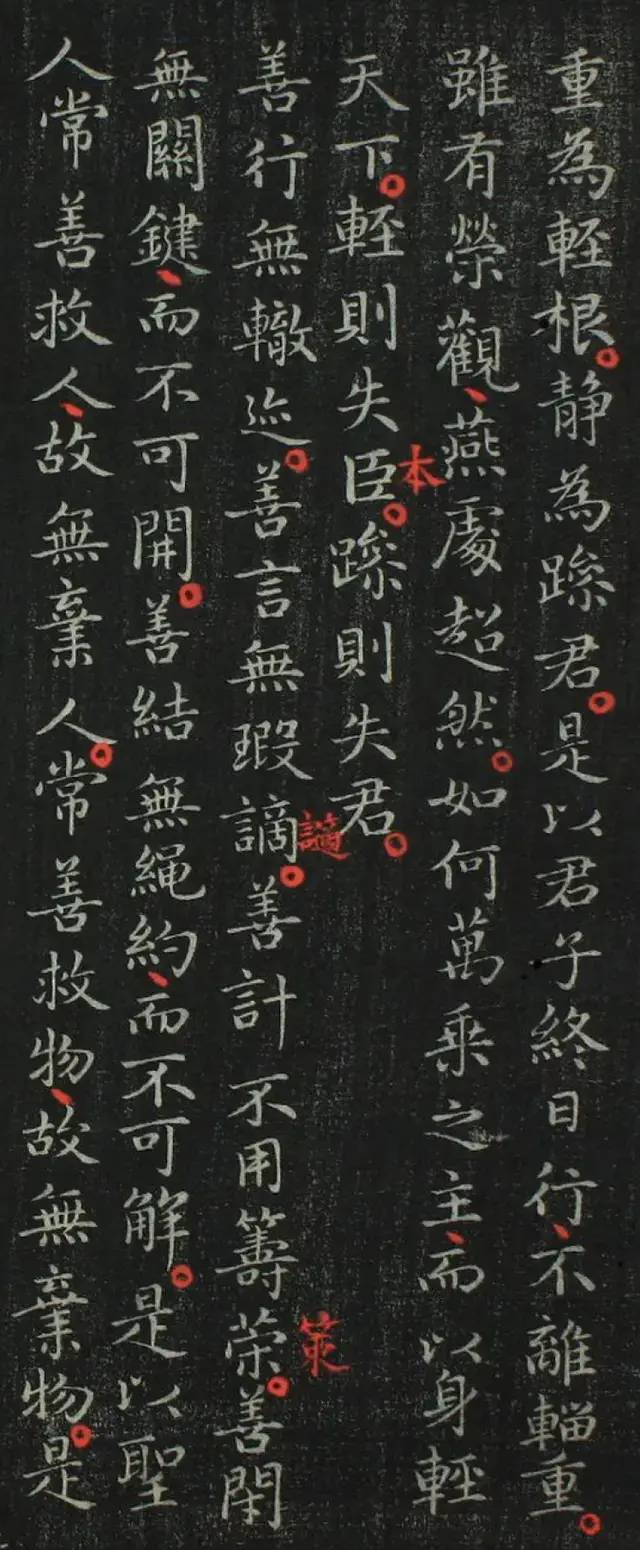 重為輕根。静為躁君。是以君子終日行、不離輜重。
雖有榮觀、燕處超然。如何萬乘之主、而以身輕
天下。輕則失臣。本躁則失君。
善行無轍迹。善言無瑕謫。讁善計不用籌荣。策善閇
無關鍵、而不可開。善結無繩約、而不可解。是以聖
人常善救人、故無棄人。常善救物、故無棄物。是